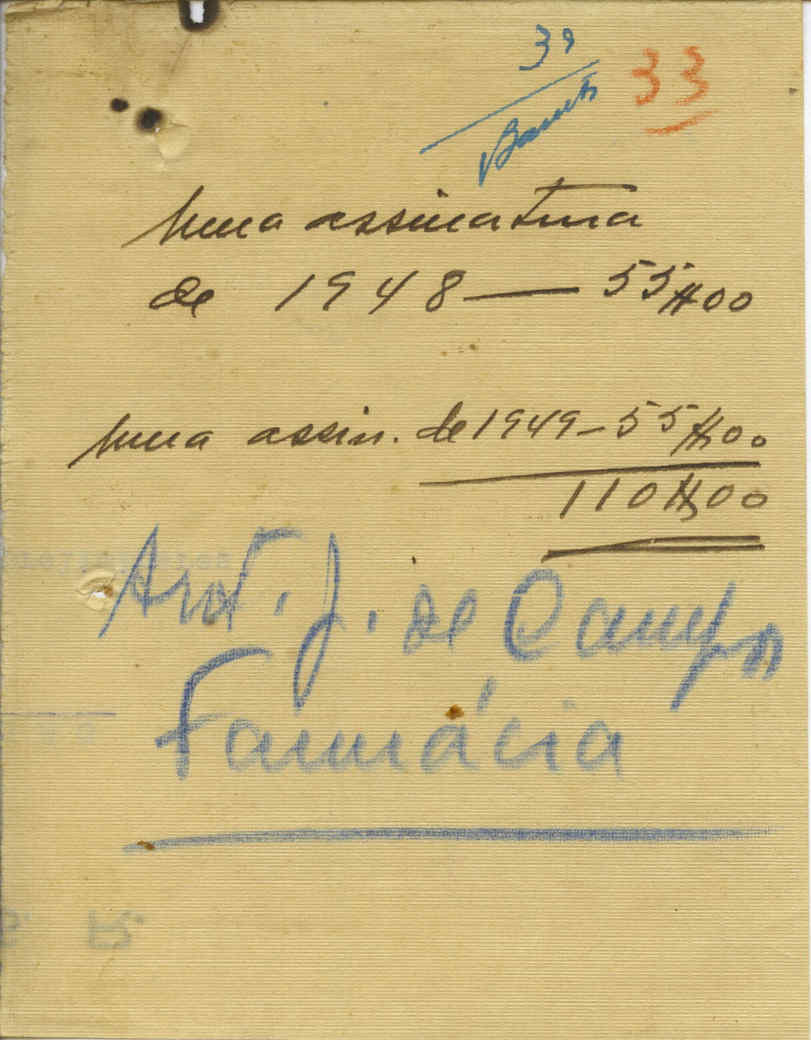 39
33
Uma assinatura
de 1948 — 55$00
Uma assin. de 1949 - 55$00
110$00
Ant. J. de Campos
Farmácia